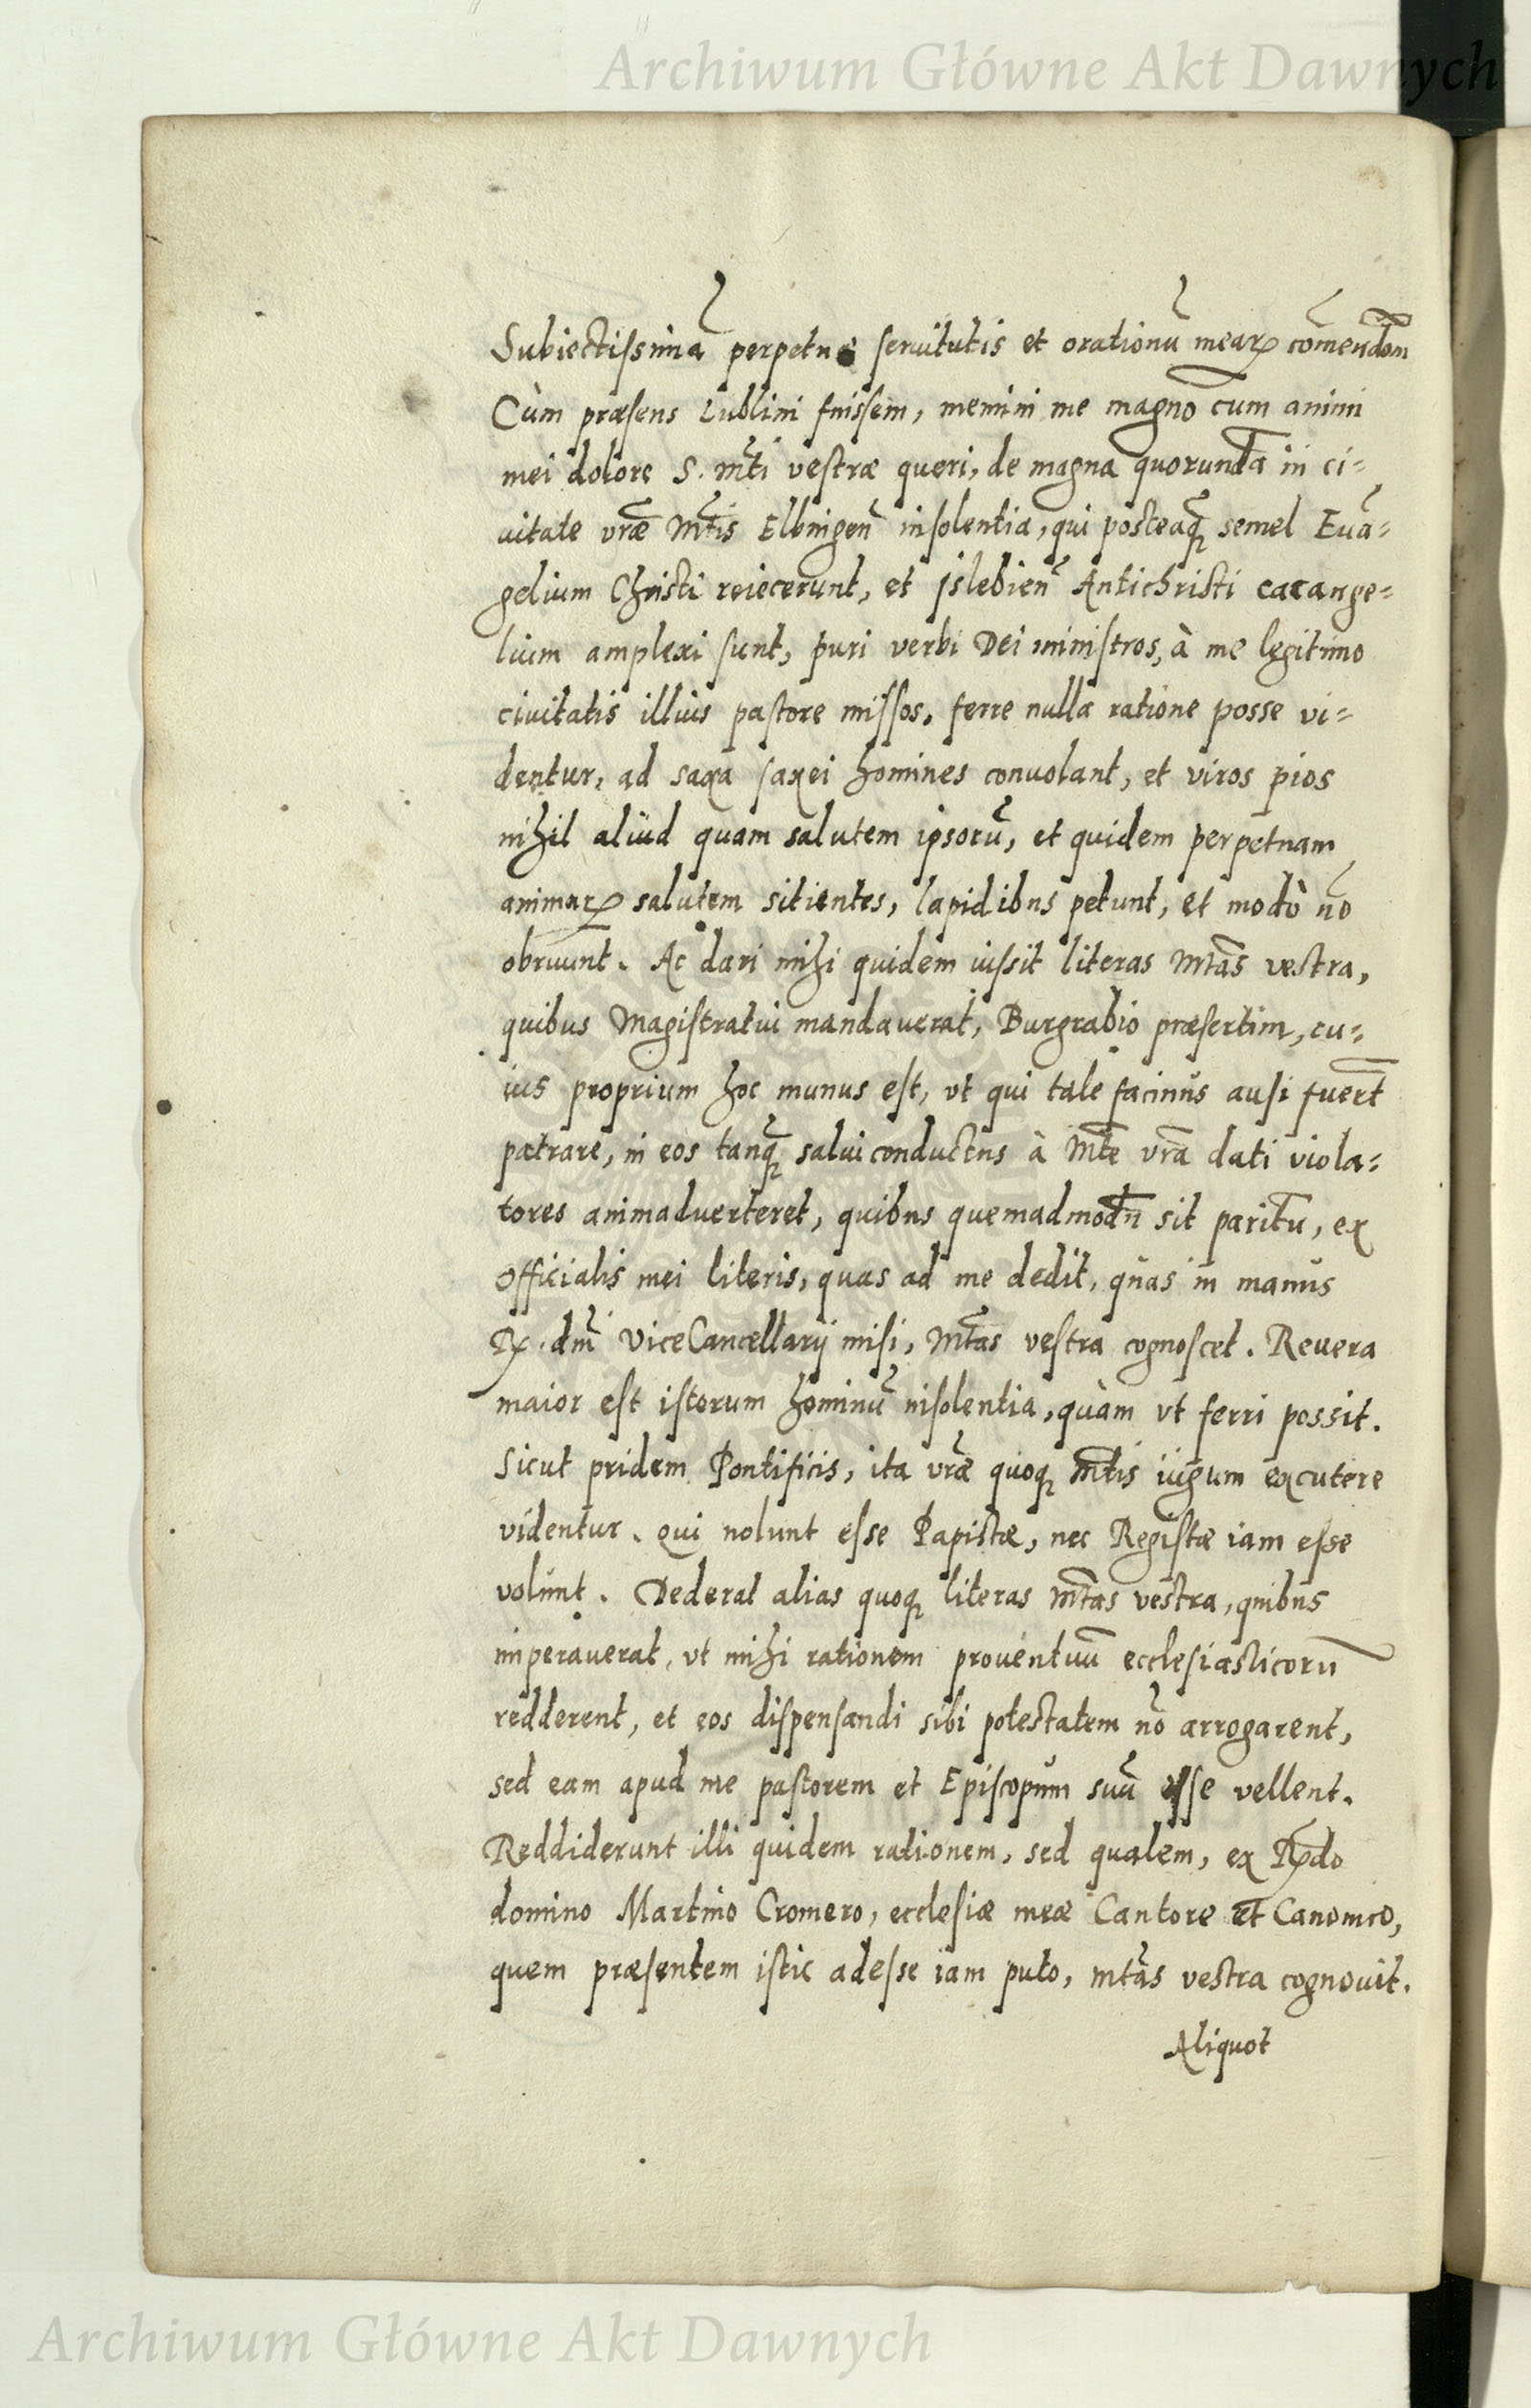 Archiwum Główne Akt Dawnych
Subiectissimã perpetuę seruitutis et orationũ mearꝝ com̃endõm
Cùm præsens Lublini fuissem, memini me magno cum animi
mei dolore S. Mt̃i vestræ queri, de magna quorundã in ci=
uitate vr̃æ Mt̃is Elbingeñ insolentia, qui posteaq̃ semel Euã=
gelium Christi reiecerunt, et Jslebieñ Antichristi cacange=
lium amplexi sunt, puri verbi Dei ministros, à me legitimo
ciuitatis illius pastore missos, ferre nulla ratione posse vi=
dentur, ad saxa saxei homines conuolant, et viros pios
nihil aliud quam salutem ipsorũ, et quidem perpetuam
animarꝝ salutem sitientes, lapidibus petunt, et modò nõ
obruunt. Ac dari mihi quidem iussit literas Mt̃as vestra,
quibus Magistratui mandauerat, Burgrabio præsertim, cu=
ius proprium hoc munus est, vt qui tale facinus ausi fuer̃t
patrare, in eos tanq̃ salui conductus à Mt̃e vr̃a dati viola=
tores animaduerteret, quibus quemadmodũ sit paritũ, ex
Officialis mei literis, quas ad me dedit, quas in manus
R. dm̃ ViceCancellarij misi, Mt̃as vestra cognoscet. Reuera
maior est istorum hominũ insolentia, quàm vt ferri possit.
Sicut pridem Pontificis, ita vr̃æ quoqꝫ Mt̃is iugum excutere
videntur. Qui nolunt esse Papistæ, nec Registæ iam esse
volunt. Dederat alias quoqꝫ literas Mt̃as vestra, quibus
imperauerat, vt mihi rationem prouentuũ ecclesiasticorũ
redderent, et eos dispensandi sibi potestatem nõ arrogarent,
sed eam apud me pastorem et Episcopum suũ esse vellent.
Reddiderunt illi quidem rationem, sed qualem, ex R̃do
domino Martino Cromero, ecclesiæ meæ Cantore et Canonico,
quem præsentem istic adesse iam puto, Mt̃as vestra cognouit.
Aliquot
Archiwum Główne Akt Dawnych